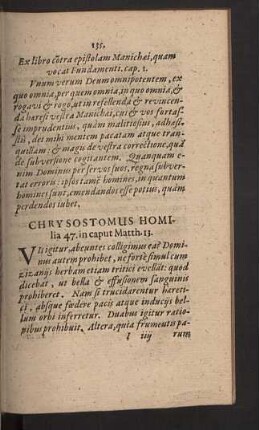 135.
Ex libro cōtra epistolam Manichæi, quam
vocat Fundamenti. cap. 1.
Vnum verum Deum omnipotentem, ex
quo omnia, per quem omnia, in quo omnia, &
rogavi & rogo, ut in refellenda & revincen-
da hæresi vestra Manichæi, cui & vos fortas-
se imprudentius, quàm malitiosius, adhæsi-
stis, det mihi mentem pacatam atque tran-
quillam: & magis de vestra correctione, quā
de subversione cogitantem. Quanquam e-
nim Dominus per servos suos, regna subver-
tat erroris: ipsos tamē homines, in quantum
homines sunt, emendandos esse potius, quàm
perdendos iubet.
CHRYSOSTOMUS HOMI-
lia 47. in caput Matth. 13.
Vis igitur, abeuntes colligimus ea? Domi-
nus autem prohibet, ne fortè simul cum
zizaniis herbam etiam tritici evellāt: quod
dicebat, ut bella & effusionem sanguinis
prohiberet. Nam si trucidarentur hæreti-
ci, absque fœdere pacis atque induciis bel-
lum orbi inferretur. Duabus igitur ratio-
nibus prohibuit. Altera, quia frumentis pa-
l iiij
rum